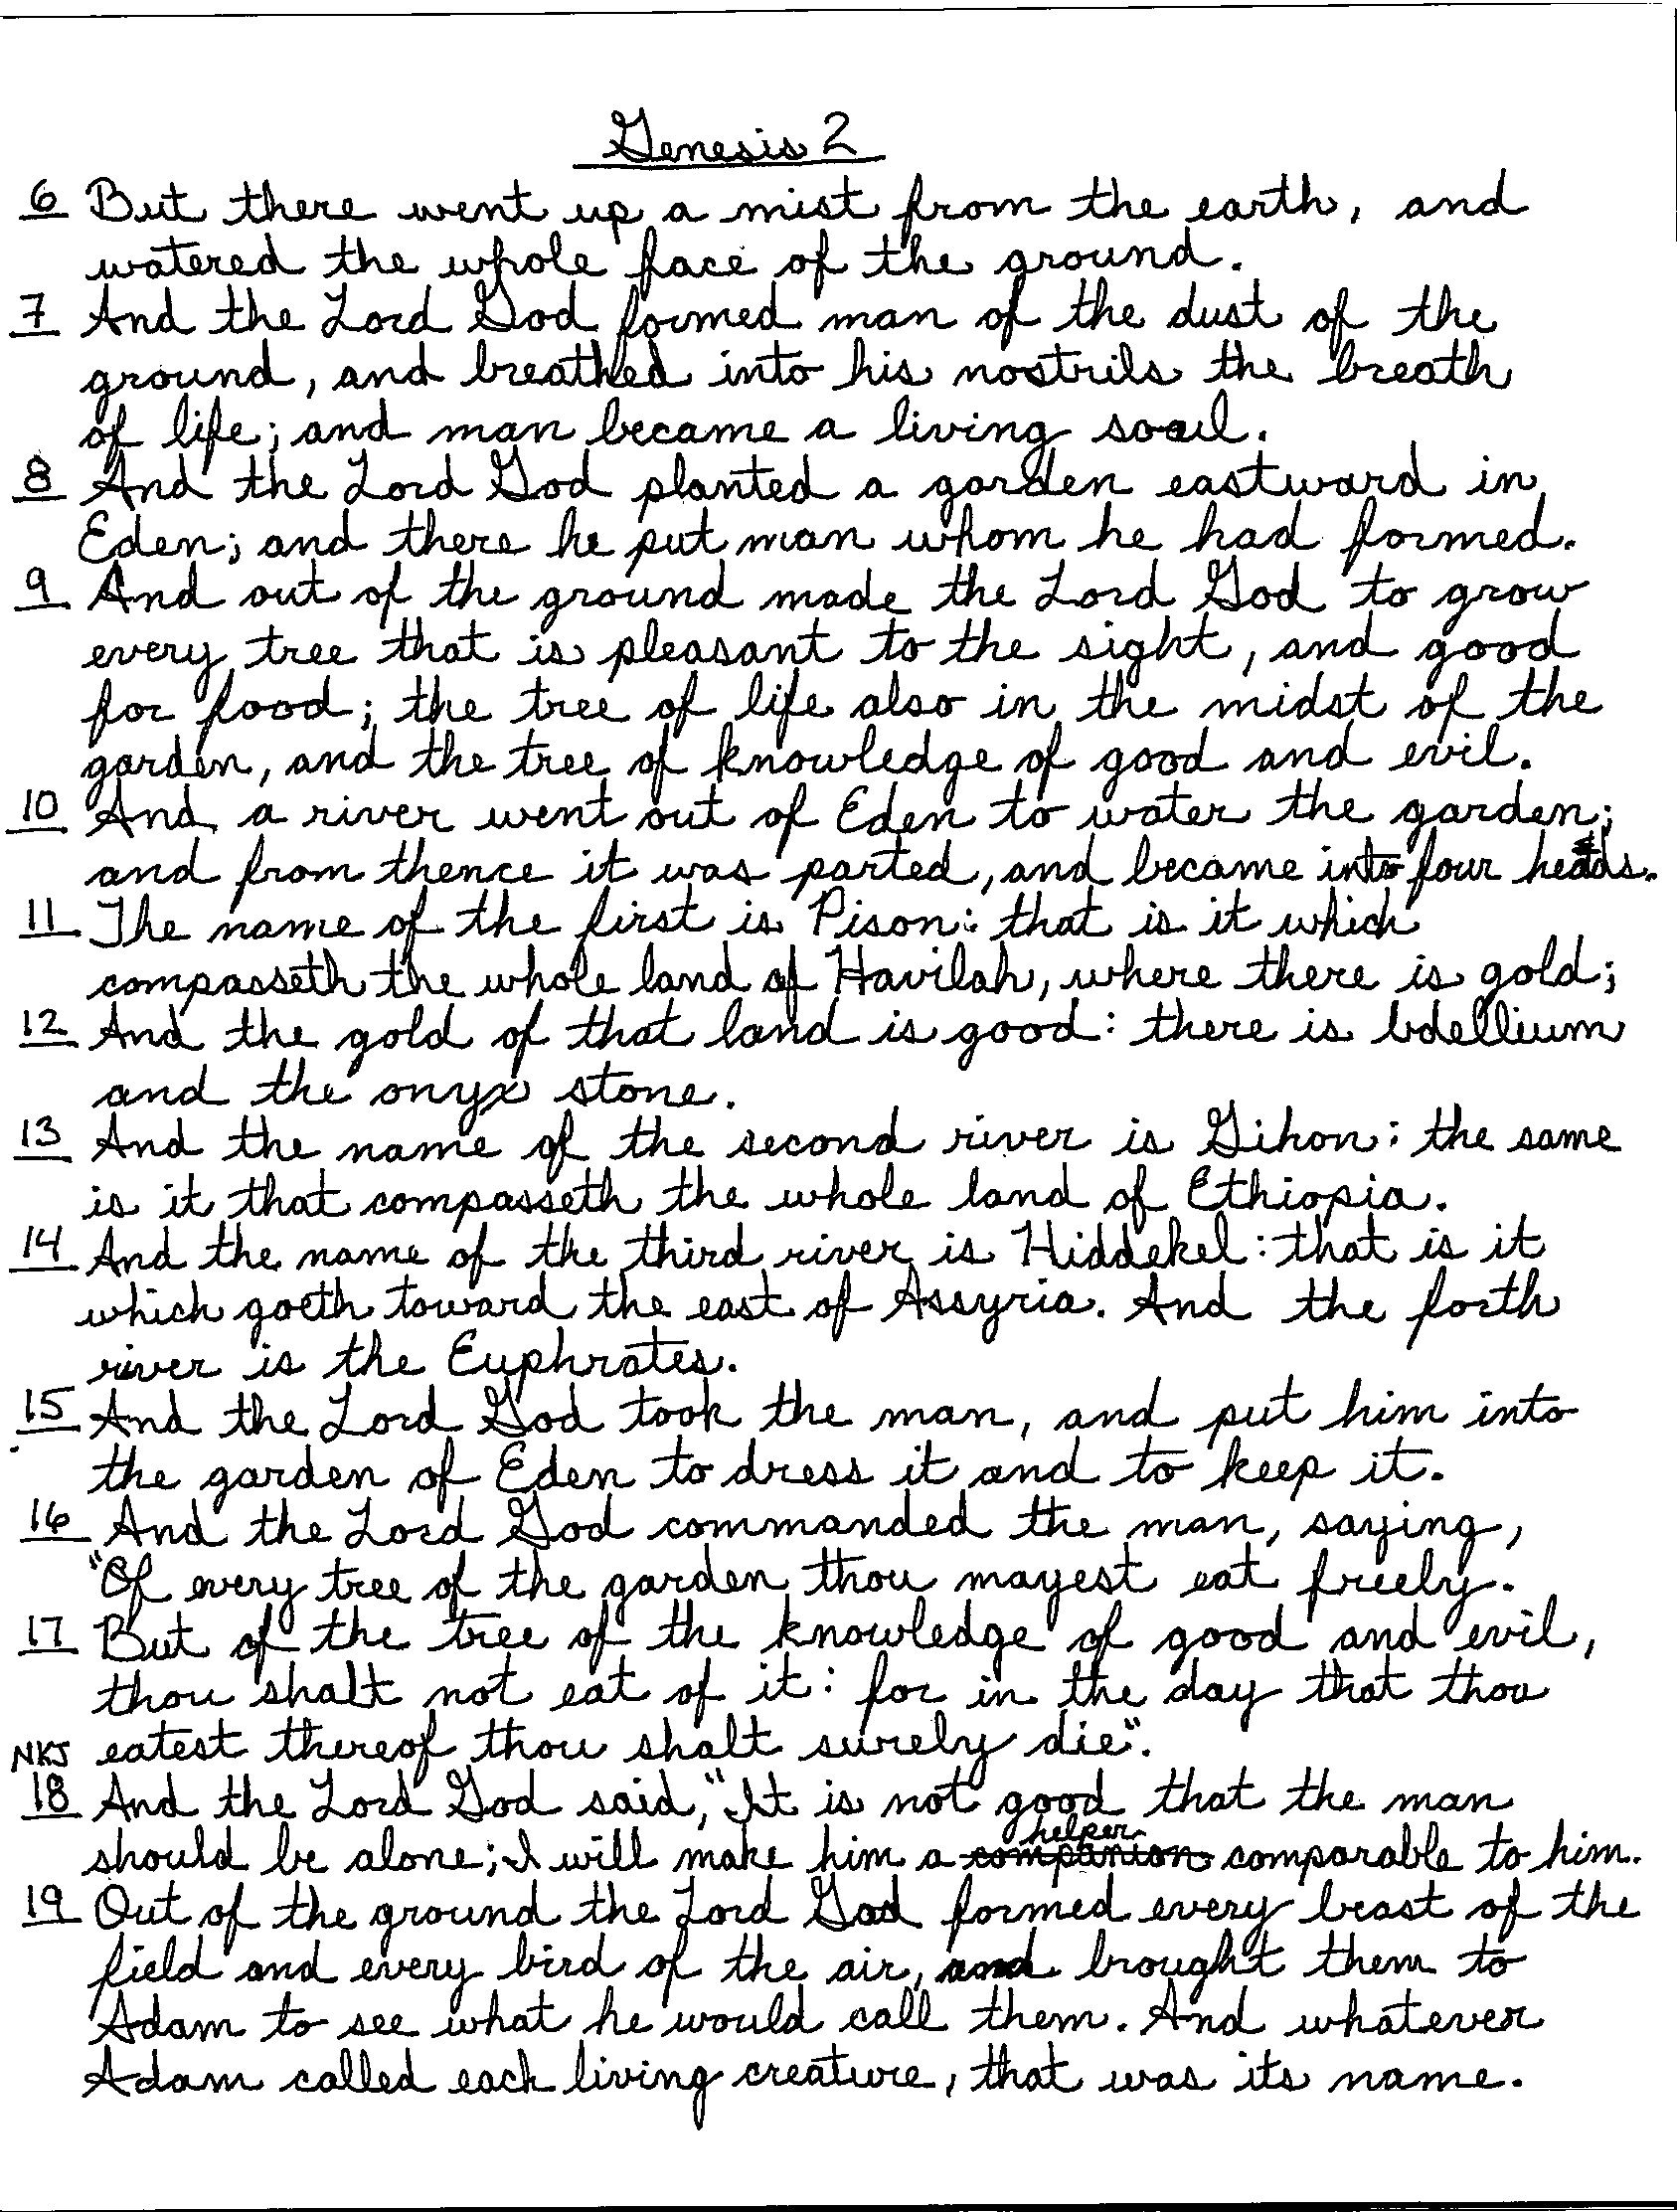 Genesis 2
6 But there went up a mist from the earth, and
watered the whole face of the ground.
7 And the Lord God formed man of the dust of the
ground, and breathed into his nostrils the breath
of life; and man became a living soul.
8 And the Lord God planted a garden eastward in
Eden; and there he put man whom he had formed.
9 And out of the ground made the Lord God to grow
every tree that is pleasant to the sight, and good
for food; the tree of life also in the midst of the
garden, and the tree of knowledge of good and evil.
10 And a river went out of Eden to water the garden;
and from thence it was parted, and became into four heads.
11 The name of the first is Pison: that is it which
compasseth the whole land of Havilah, where there is gold;
12 And the gold of that land is good: there is bdellium
and the onyx stone.
13 And the name of the second river is Gihon: the same
is it that compasseth the whole land of Ethiopia.
14 And the name of the third river is Hiddekel: that is it
which goeth toward the east of Assyria. And the forth
river is the Euphrates.
15 And the Lord God took the man, and put him into
the garden of Eden to dress it and to keep it.
16 And the Lord God commanded the man, saying,
"Of every tree of the garden thou mayest eat freely.
17 But of the tree of the knowledge of good and evil,
thou shalt not eat of it: for in the day that thou
eatest thereof thou shalt surely die".
NKJ
18 And the Lord God said, "It is not good that the man
helper
should be alone; I will make him a companion comparable to him.
19 Out of the ground the Lord God formed every beast of the
field and every bird of the air, and brought them to
Adam to see what he would call them. And whatever
Adam called each living creature, that was its name.